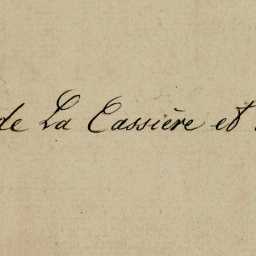 de La Cassière et